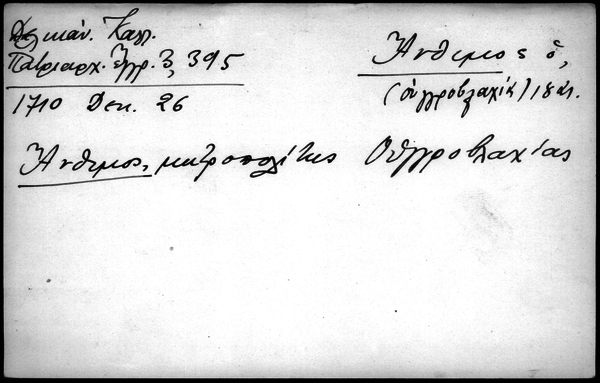 Δελικάν. Καλλ.
Πατριαρχ. Ἔγγρ. 3, 395
1710 Δεκ. 26
Ἄνθιμος ὁ,
(Οὑγγροβλαχία) 18 αἰ.
Ἄνθιμος, μητροπολίτης Οὑγγροβλαχίας